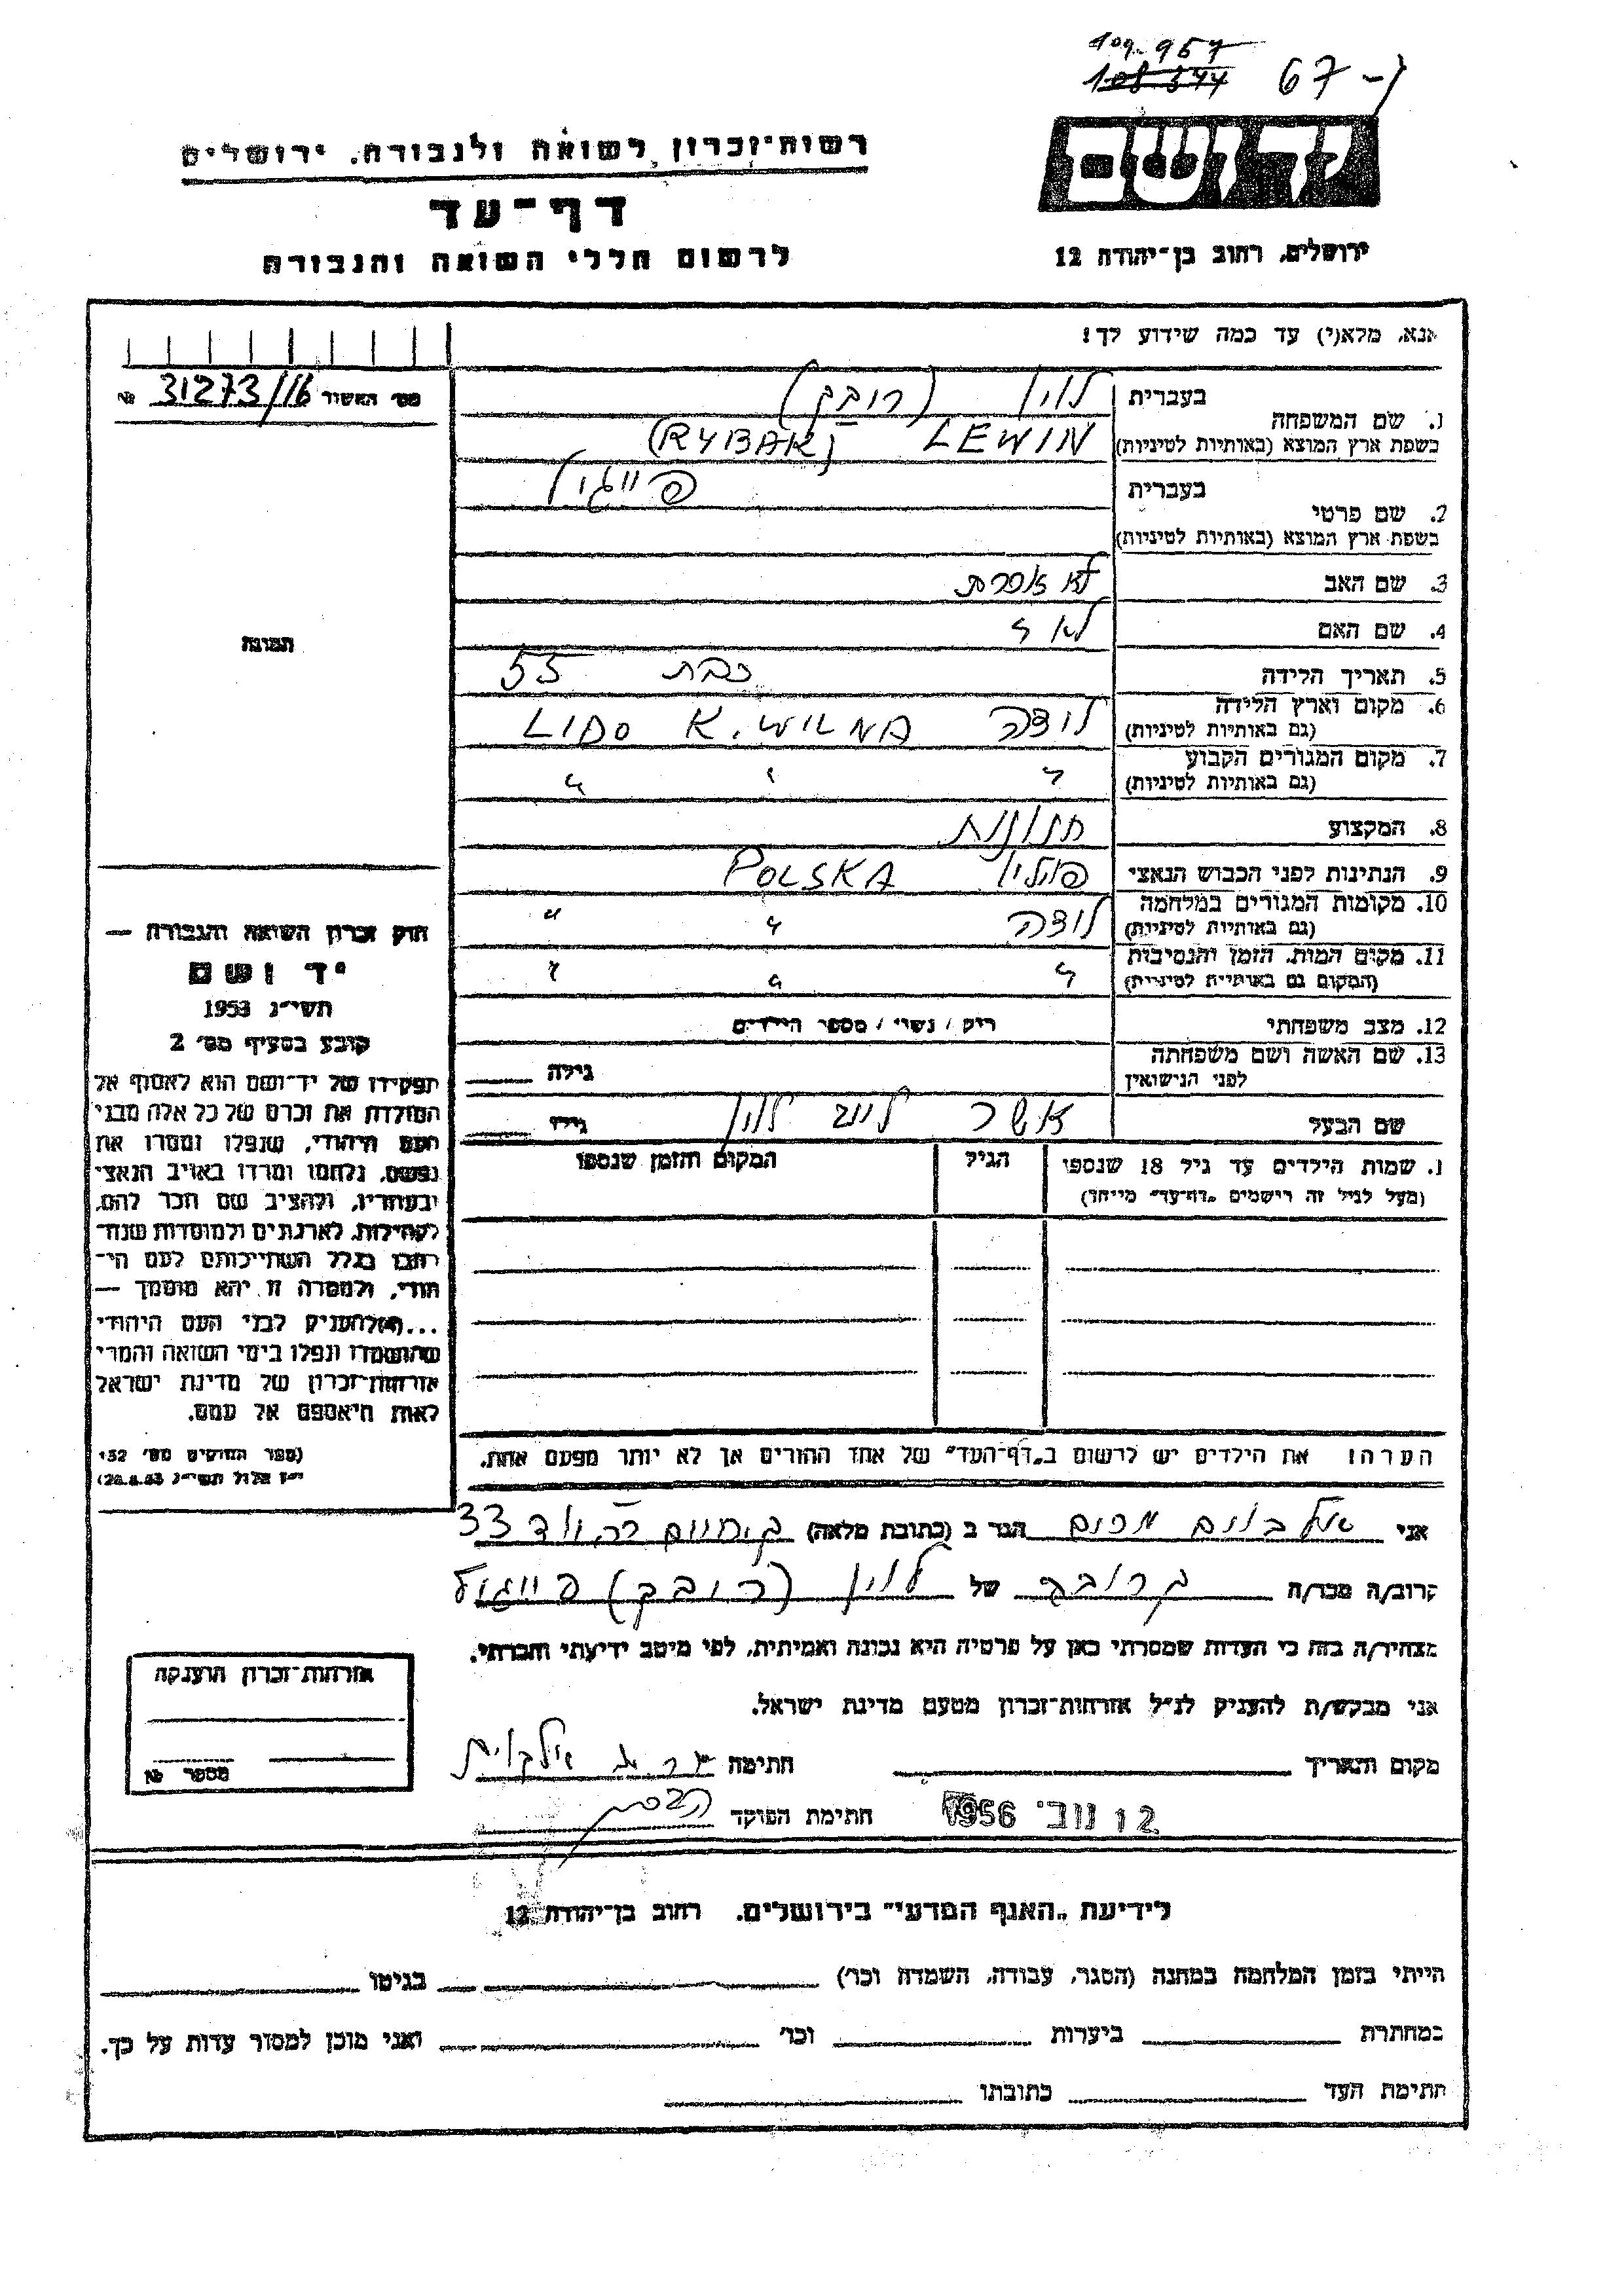 109.957
108 344 67-
רשות־זכרון לשואה ולגבורה, ירושלים
יד ושם
דף־עד
לרשום חללי השואה והגבורה
ירושלים, רחוב בן־יהודה 12
אנא, מלא(י) עד כמה שידוע לך!
מס׳ האשור 31273/16 №
1. שם המשפחה
בעברית לוין
בשפת ארץ המוצא (באותיות לטיניות) LEWIN (RYBAK)
2. שם פרטי
בעברית
בשפת ארץ המוצא (באותיות לטיניות)
3. שם האב לא
4. שם האם לא "
תמונה
5. תאריך הלידה כבת 55
6. מקום וארץ הלידה
(גם באותיות לטיניות) לידה LIDO K. WILNA
7. מקום המגורים הקבוע
(גם באותיות לטיניות) " " "
8. המקצוע
9. הנתינות לפני הכבוש הנאצי פולין POLSKA
10. מקומות המגורים במלחמה
(גם באותיות לטיניות) לידה " "
11. מקום המות, הזמן והנסיבות
(המקום גם באותיות לטיניות) " " "
12. מצב משפחתי רוק / נשוי / מספר הילדים
13. שם האשה ושם משפחתה
לפני הנישואין גילה
שם הבעל אשר לייב לוין גילו
חוק זכרון השואה והגבורה —
יד ושם
תשי״ג 1953
קובע בסעיף מס׳ 2
תפקידו של יד־ושם הוא לאסוף אל
המולדת את זכרם של כל אלה מבני
העם היהודי, שנפלו ומסרו את
נפשם, נלחמו ומרדו באויב הנאצי
ובעוזריו, ולהציב שם וזכר להם,
לקהילות, לארגונים ולמוסדות שנח־
רבו בגלל השתייכותם לעם הי־
הודי, ולמטרה זו יהא מוסמך —
...להעניק לבני העם היהודי
שהושמדו ונפלו בימי השואה והמרי
אזרחות־זכרון של מדינת ישראל
לאות היאספם אל עמם.
(ספר החוקים מס׳ 132
י״ז אלול תשי״ג 28.8.53)
1. שמות הילדים עד גיל 18 שנספו
(מעל לגיל זה רישמים „דף־עד״ מיוחד)
הגיל
המקום והזמן שנספו
הערה: את הילדים יש לרשום ב„דף־העד״ של אחד ההורים אך לא יותר מפעם אחת.
אני הגר ב (כתובת מלאה) 33
קרוב/ה מכר/ה של לוין
מצהיר/ה בזה כי העדות שמסרתי כאן על פרטיה היא נכונה ואמיתית, לפי מיטב ידיעתי והכרתי.
אני מבקש/ת להעניק לנ״ל אזרחות־זכרון מטעם מדינת ישראל.
אזרחות־זכרון הוענקה
מספר №
מקום ותאריך חתימה
12 נוב׳ 1956 חתימת הפוקד
לידיעת „האגף המדעי״ בירושלים, רחוב בן־יהודה 12
הייתי בזמן המלחמה במחנה (הסגר, עבודה, השמדה וכו׳) בגיטו
במחתרת ביערות וכו׳ ואני מוכן למסור עדות על כך.
חתימת העד כתובתו